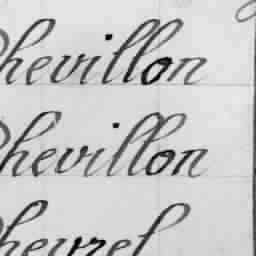 Chevillon
Chevillon
Chevrel